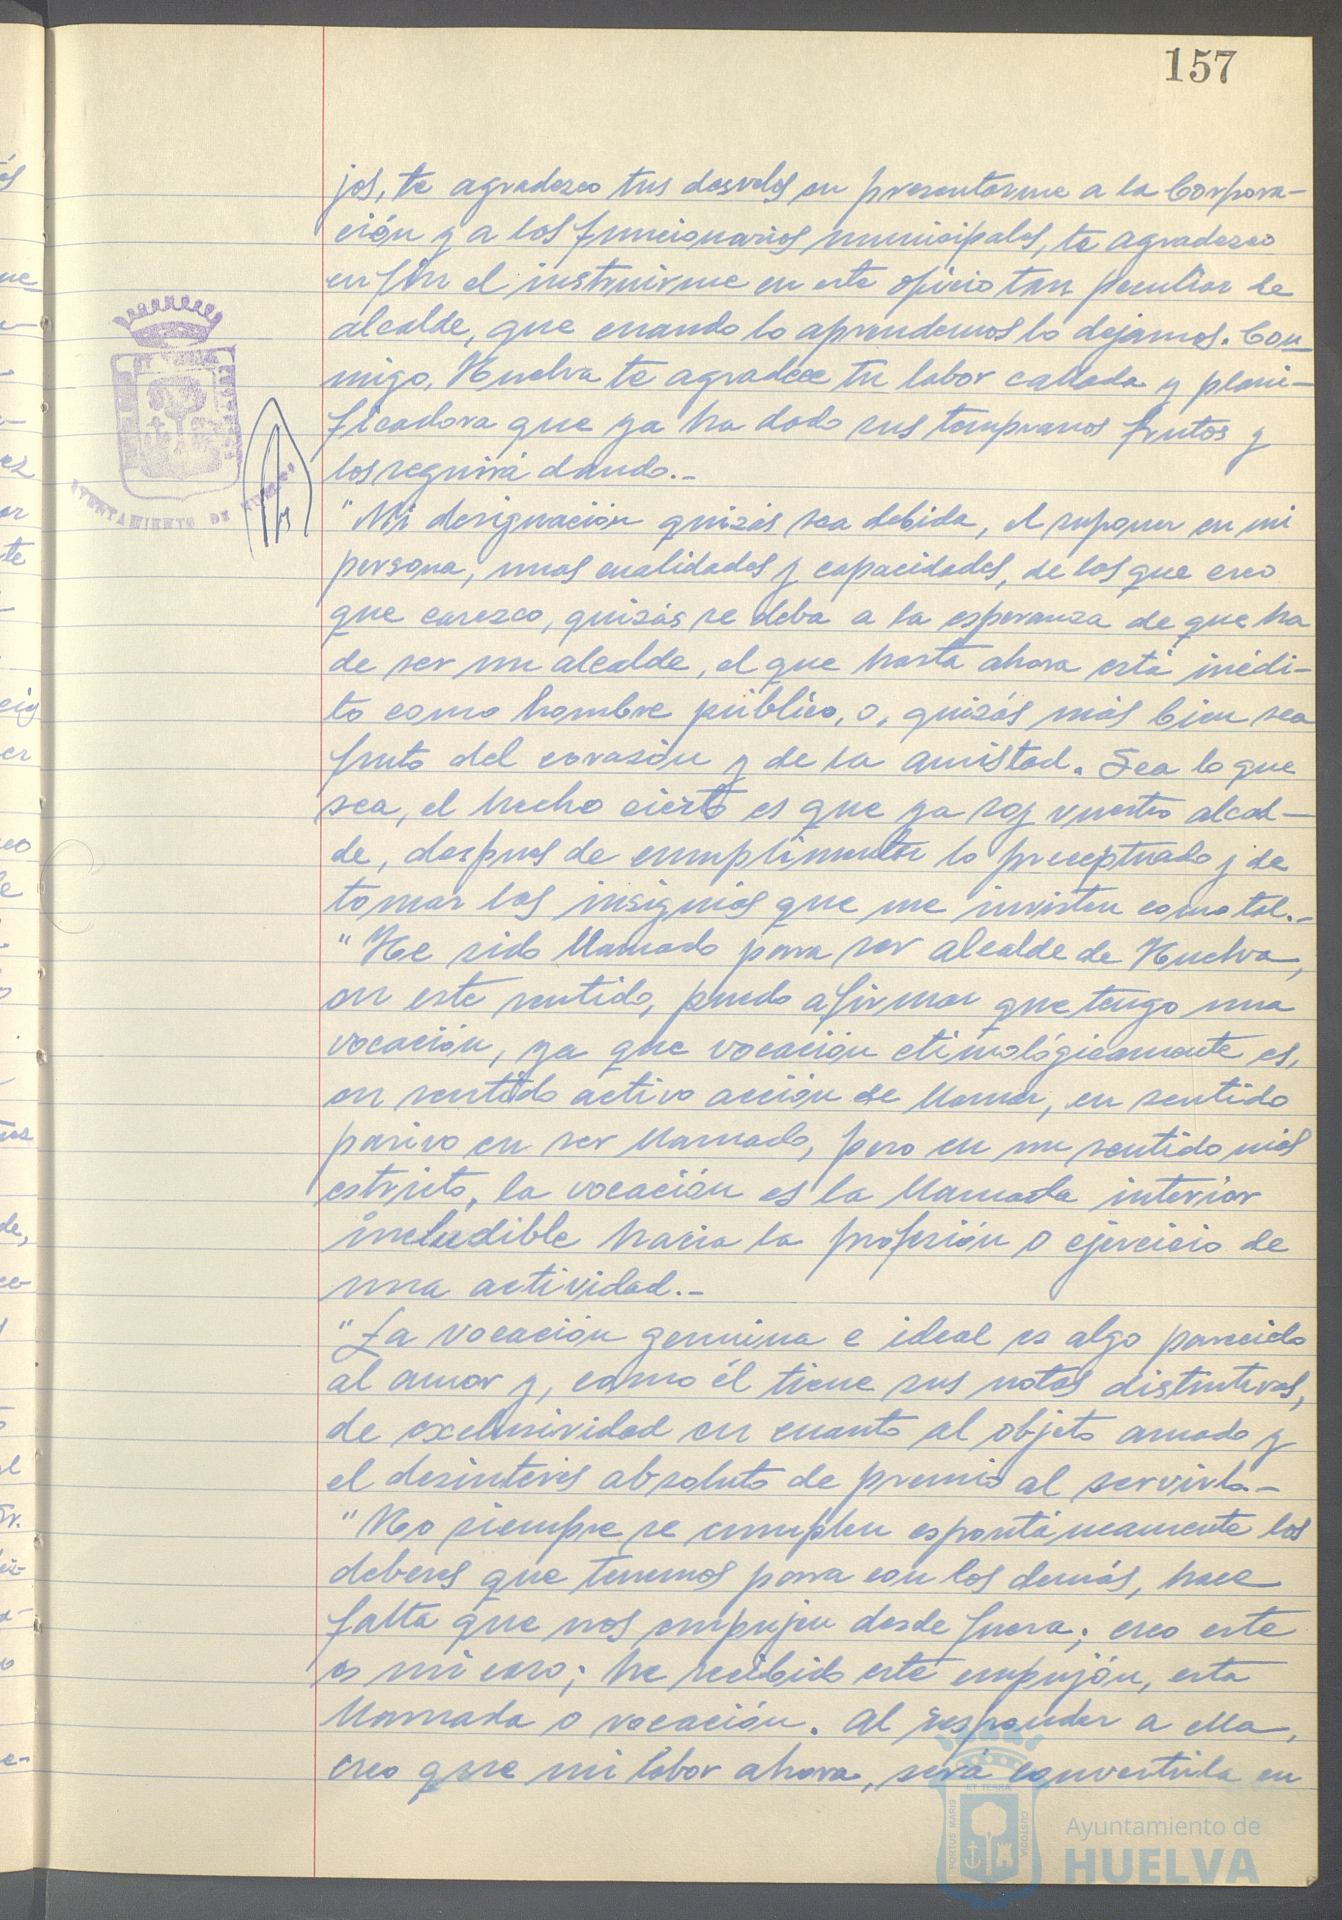 157
jos, te agradezco tus desvelos en presentarme a la Corpora-
ción y a los funcionarios municipales, te agradezco
en fin el instruirme en este oficio tan peculiar de
alcalde, que cuando lo aprendemos lo dejamos. Con-
migo, Huelva te agradece tu labor callada y plani-
ficadora que ya ha dado sus tempranos frutos y
los seguirá dando.-
"Mi designación quizás sea debida, el suponer en mi
persona, unas cualidades y capacidades, de las que creo
que carezco, quizás se deba a la esperanza de que ha
de ser un alcalde, el que hasta ahora está inédi-
to como hombre público, o, quizás más bien sea
fruto del corazón y de la amistad. Sea lo que
sea, el hecho cierto es que ya soy vuestro alcal-
de, despues de cumplimentar lo preceptuado y de
tomar las insignias que me invisten como tal.-
"He sido llamado para ser alcalde de Huelva,
en este sentido, puedo afirmar que tengo una
vocación, ya que vocación etimológicamente es,
en sentido activo acción de llamar, en sentido
pasivo en ser llamado, pero en un sentido más
estricto, la vocación es la llamada interior
ineludible hacia la profesión o ejercicio de
una actividad.-
"La vocación genuina e ideal es algo parecido
al amor y, como él tiene sus notas distintivas,
de exclusividad en cuanto al objeto amado y
el desinterés absoluto de premio al servirlo.-
"No siempre se cumplen espontáneamente los
deberes que tenemos para con los demás, hace
falta que nos empujen desde fuera; creo este
es mi caso; he recibido este empujón, esta
llamada o vocación. Al responder a ella,
creo que mi labor ahora, será convertirla en
AYUNTAMIENTO DE HUELVA
PORTUS MARIS
ET TERRA
CUSTODIA
Ayuntamiento de
HUELVA